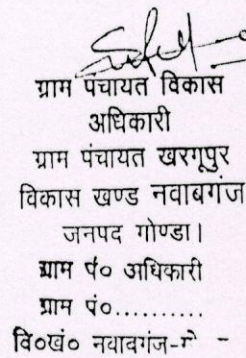 ग्राम पंचायत विकास
अधिकारी
ग्राम पंचायत खरगूपुर
विकास खण्ड नवाबगंज
जनपद गोण्डा।
ग्राम पं० अधिकारी
ग्राम पं०..........
वि०खं० नवाबगंज-गो